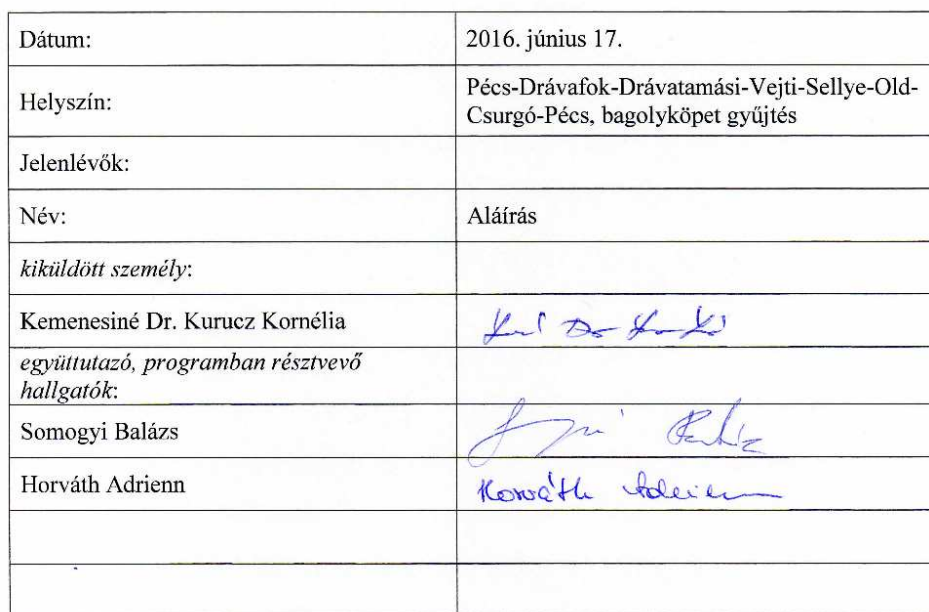 Dátum: 2016. június 17.
Helyszín: Pécs-Drávafok-Drávatamási-Vejti-Sellye-Old-
Csurgó-Pécs, bagolyköpet gyűjtés
Jelenlévők:
Név: Aláírás
kiküldött személy:
Kemenesiné Dr. Kurucz Kornélia
együttutazó, programban résztvevő
hallgatók:
Somogyi Balázs
Horváth Adrienn Horváth Adrienn